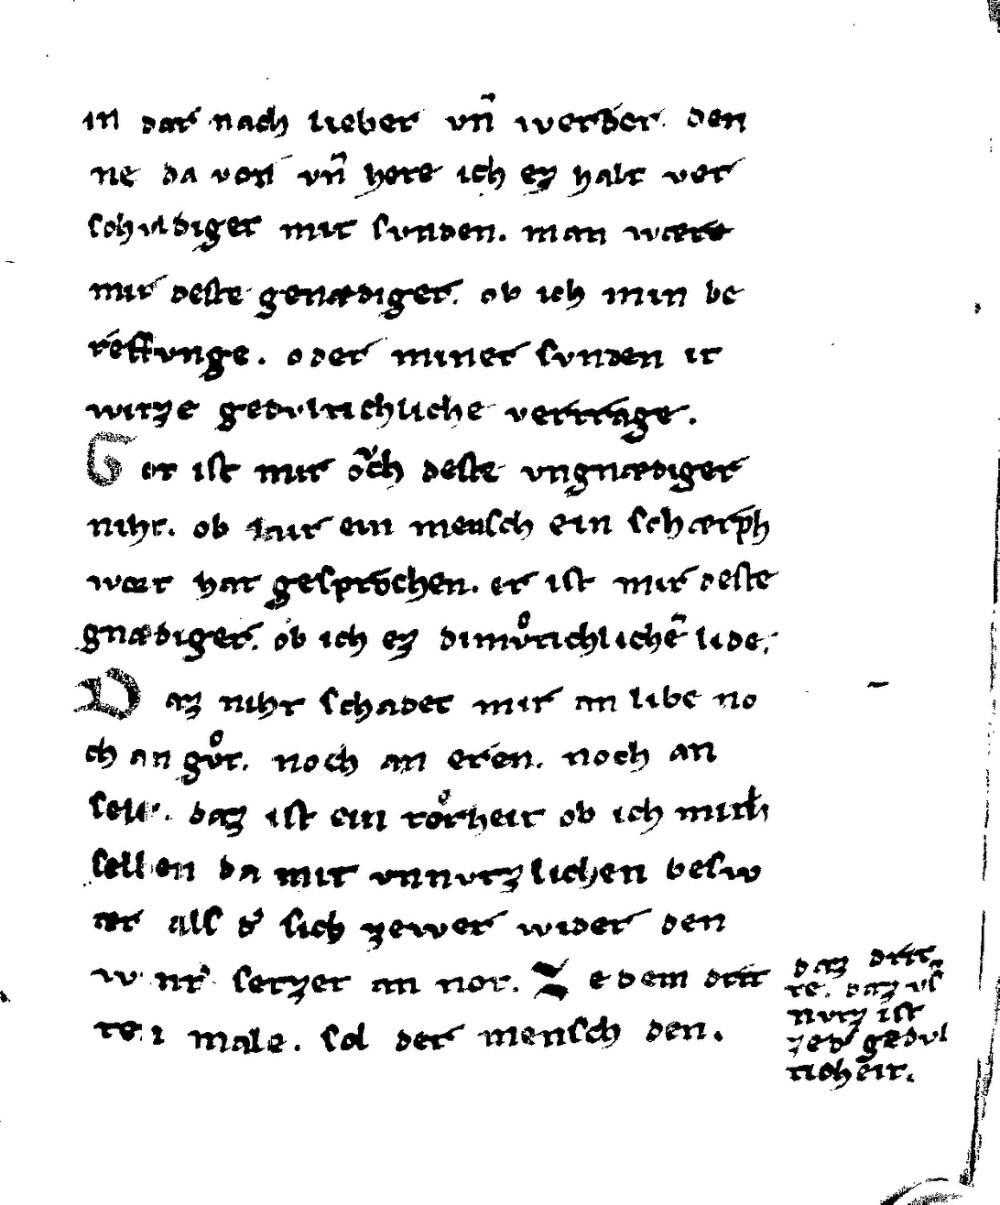 in dar nach lieber vn̄ werder den
ne da von vn̄ here ich ez halt ver
schuldiget mit sunden. man wære
mir deste genædiger. ob ich min be
reffunge. oder miner sunden it
witze gedultichliche vertrage.
Got ist mir ovch deste ungnædiger
niht. ob mir ein mensch ein schærph
wort hat gesprochen. er ist mir deste
gnædiger. ob ich ez dimuͦtichlichē lide.
Daz niht schadet mir an libe no
ch an guͦt. noch an eren. noch an
sele. daz ist ein torheit ob ich mich
selben da mit unnutzlichen besw
ær als d͛ sich zewer wider den
setzet an not. Ze dem drit
ten male. sol der mensch den.
daz drit
te. daz vn̄
nutz ist
zed͛ gedul
ticheit.